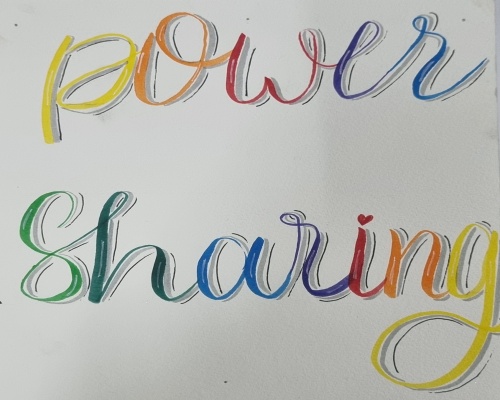 power
Sharing